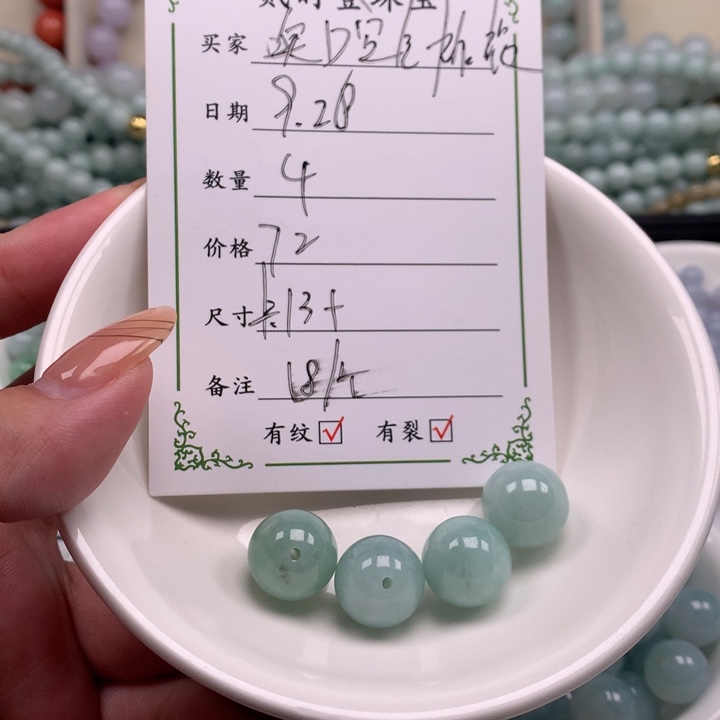 买家
日期 9.28
数量 4
价格 72
尺寸 13+
备注 18/个
有纹☑ 有裂☑